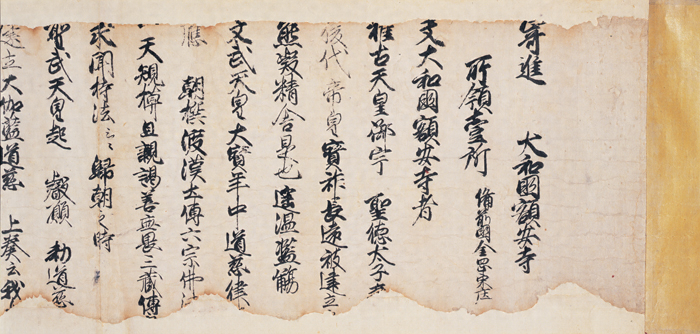 寄進 大和國額安寺
所領壹所 備前國金岡東庄
夫大和國額安寺者
推古天皇御宇 聖德太子
後代帝皇寶祚長遠被建立
熊凝精舎是也 遂温濫觴
文武天皇大寶年中 道慈律
應 朝撰渡漢土傳六宗佛法
天規梓且親謁善無畏三藏傳
求聞持法云々歸朝之時
聖武天皇起 叡願 勅道慈
建立大伽藍道慈 上奏云我